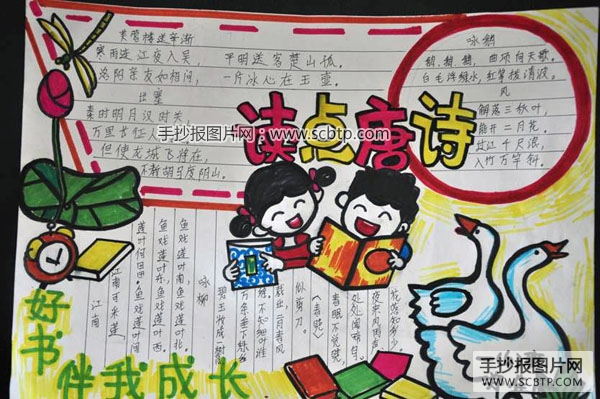 芙蓉楼送辛渐
寒雨连江夜入吴,
平明送客楚山孤。
洛阳亲友如相问,
一片冰心在玉壶。
出塞
秦时明月汉时关
万里长征人
但使龙城飞将在,
不教胡马度阴山。
手抄报图片网：www.scbtp.com
读点唐诗
咏鹅
鹅,鹅,鹅,曲项向天歌。
白毛浮绿水,红掌拨清波。
风
解落三秋叶,
能开二月花。
过江千尺浪,
入竹万竿斜。
江南
江南可采莲
莲叶何田田.鱼戏莲叶间
鱼戏莲叶东,鱼戏莲叶西.
鱼戏莲叶南,鱼戏莲叶北。
咏柳
碧玉妆成一树
万条垂下绿丝
不知细叶谁
裁出二月春风
似剪刀。
《春晓》
春眠不觉晓,
处处闻啼鸟。
夜来风雨声
花落知多少.
好书
伴我成长
手抄报图片网
WWW.SCBTP.COM